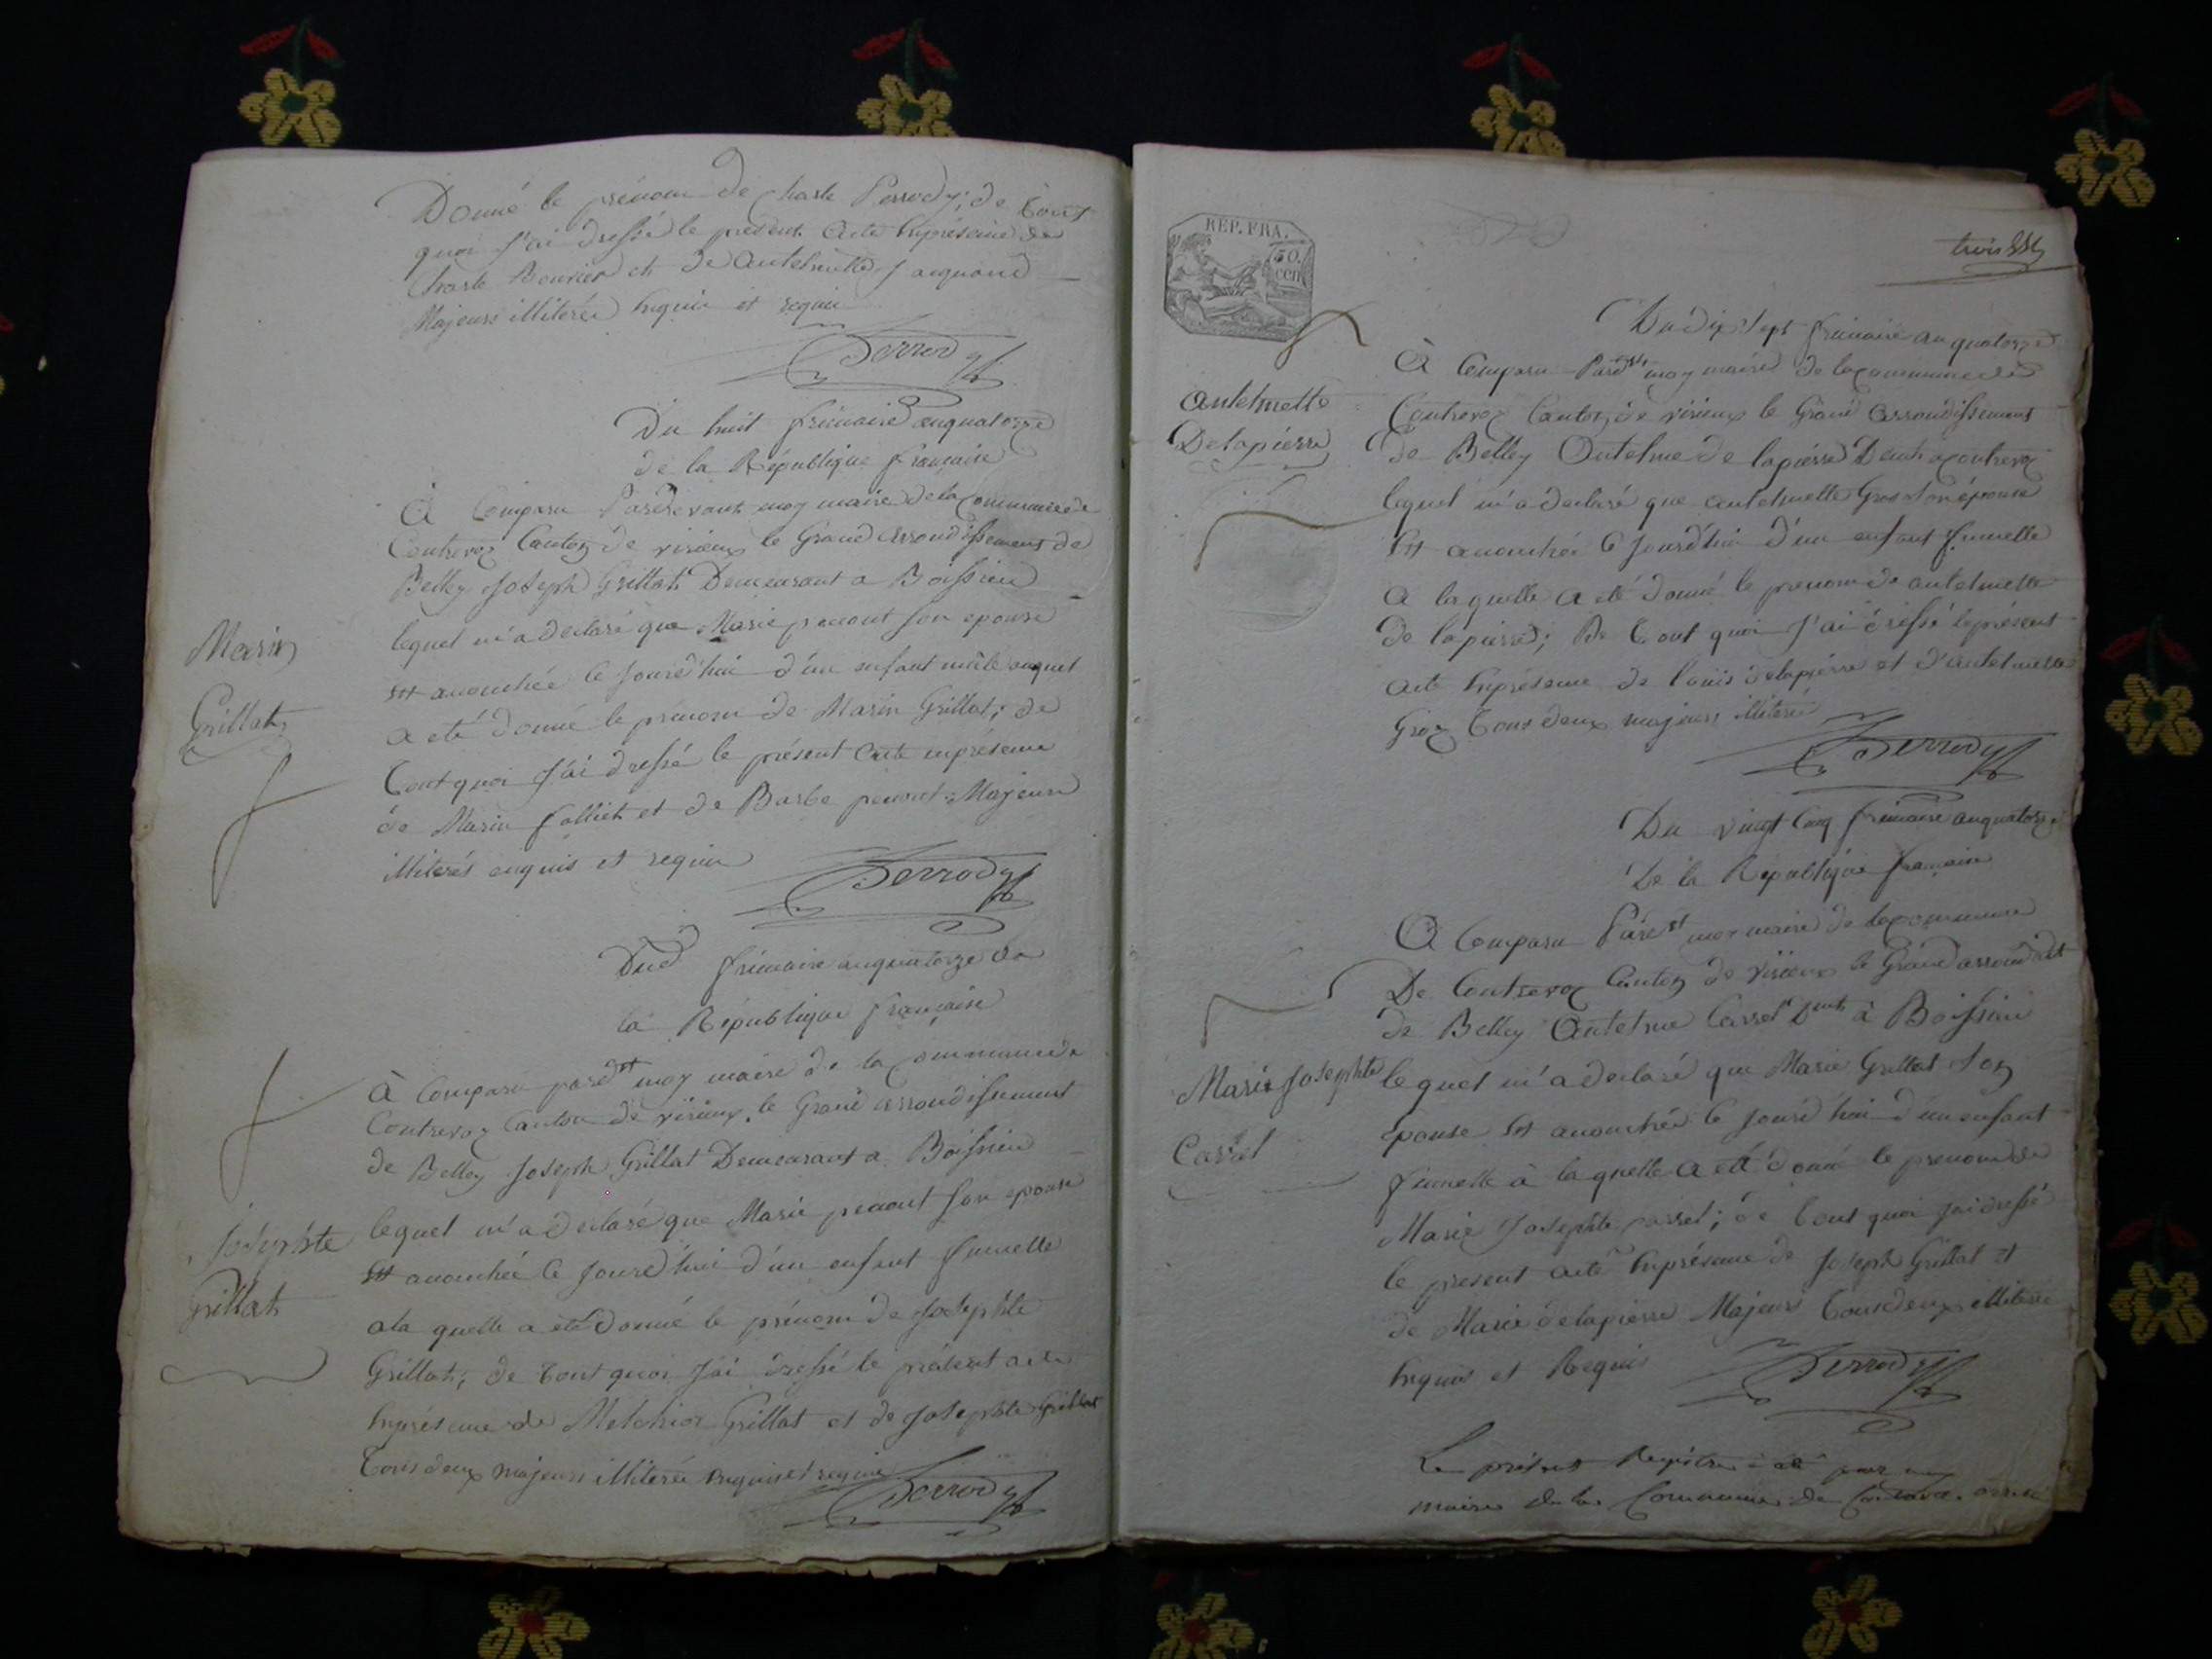 Donné le prénom de Charle Perrody; de tout
quoi J'ai dressé le présent acte inpréséance de
Charle Bouvier et de antelmette Jacquand
Majeurs illiterée enquis et requis
Perrody
Du huit frimaire anquatorze
de la République française
A Comparu Pardevant moy maire de la Commune de
Contrevoz Canton de virieux le Grand arrondissement de
Belley Joseph Grillat Demeurant a Boissieu
lequel m'a declaré que Marie penont son epouse
Est accouchée Ce Jourd'hui d'un enfant mâle auquel
a eté donné le prénom de Marin Grillat; de
Tout quoi J'ai dressé le présent acte inprésence
de Marin folliet et de Barbe penont Majeurs
illiterés enquis et requis
Perrody
Marin
Grillat
Dud frimaire anquatorze de
la République française
A Comparu pardt moy maire de la Commune de
Contrevoz Canton de virieux le Grand arrondissement
de Belley Joseph Grillat Demeurant a Boissieu
lequel m'a declaré que Marie penont son epouse
Est accouchée Ce Jourd'hui d'un enfant fumelle
a la quelle a eté donné le prénom de Josephte
Grillat; de tout quoi J'ai dressé le présent acte
Inprésence de Melchior Grillat et de Josephte Grillat
Tous deux majeurs illiterée enquis et requis
Perrody
Josephte
Grillat
REP. FRA.
50.
cen
trois
Du dix Sept frimaire an quatorze
A Comparu Pardt moy maire de la commune de
Contrevoz Canton de virieux le Grand arrondissement
de Belley Antelme de lapierre Demt a contrevoz
lequel m'a declaré que antelmette Gros Son épouse
Est accouchée Ce Jourd'hui d'un enfant fumelle
A la quelle a eté donné le prenom de antelmette
de lapierre; De Tout quoi J'ai dréssé le présent
acte Inprésence de Louis delapierre et d'antelmette
Groz Tous deux majeurs illiterée
Perrody
antelmette
Delapierre
Du vingt Cinq frimaire anquatorze
De la République française
A Comparu Pardt moy maire de la commune
De Contrevoz Canton de virieux le Grand arrondt
de Belley Antelme Carrel Dmt à Boissieu
lequel m'a declaré que Marie Grillat Son
épouse Est accouchée Ce Jourd'hui d'un enfant
fumelle à la quelle a eté donné le prenom de
Marie Josephte carrel; de Tout quoi J'ai dressé
le present acte Inprésence de Joseph Grillat et
de Marie delapierre Majeurs Tous deux illiterée
Enquis et Requis
Perrody
Marie Josephte
Carrel
Le présent Registre a été par moy
maire de la Commune de Contrevoz